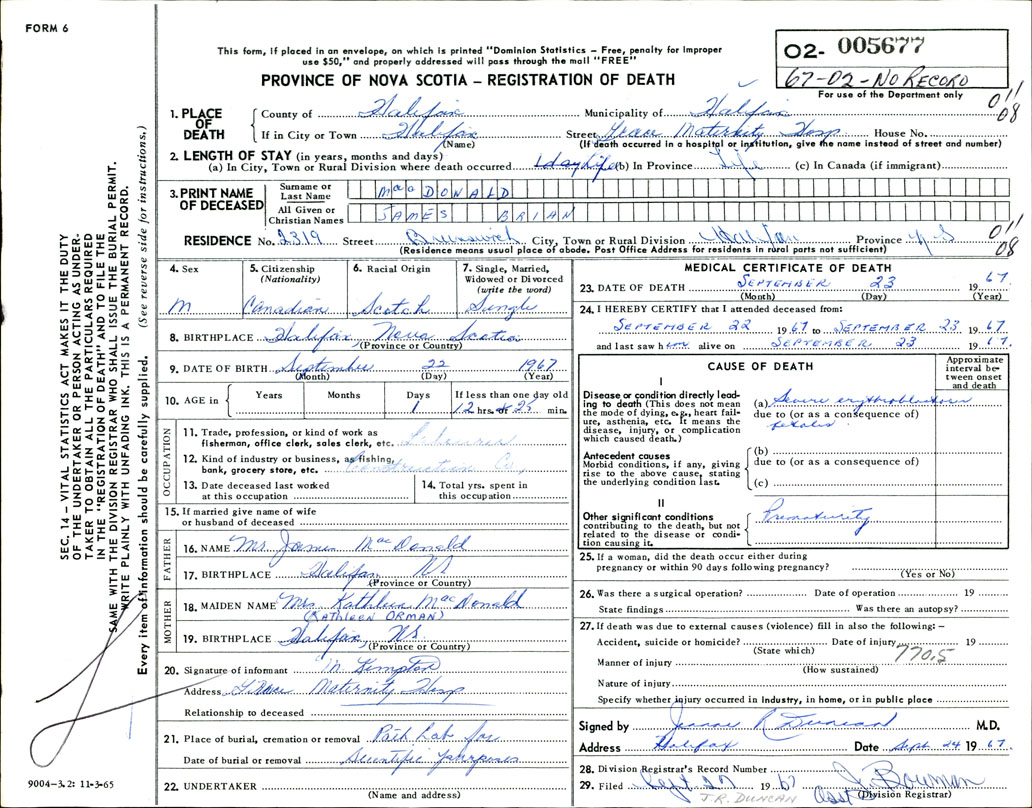 FORM 6
This form, if placed in an envelope, on which is printed "Dominion Statistics – Free, penalty for improper
use $50," and properly addressed will pass through the mail "FREE"
PROVINCE OF NOVA SCOTIA – REGISTRATION OF DEATH
O2- 005677
67-02-NO RECORD
For use of the Department only
011
08
1. PLACE OF DEATH
County of Halifax Municipality of Halifax
If in City or Town Halifax Street Grace Maternity Hosp House No.
(Name) (If death occurred in a hospital or institution, give the name instead of street and number)
2. LENGTH OF STAY (in years, months and days)
(a) In City, Town or Rural Division where death occurred 1 day Life (b) In Province Life (c) In Canada (if immigrant)
3. PRINT NAME OF DECEASED
Surname or Last Name MacDONALD
All Given or Christian Names JAMES BRIAN
011
08
RESIDENCE No. 2319 Street Brunswick City, Town or Rural Division Halifax Province N S
(Residence means usual place of abode. Post Office Address for residents in rural parts not sufficient)
4. Sex
M
5. Citizenship
(Nationality)
Canadian
6. Racial Origin
Scotch
7. Single, Married,
Widowed or Divorced
(write the word)
Single
8. BIRTHPLACE Halifax Nova Scotia
(Province or Country)
9. DATE OF BIRTH September 22 1967
(Month) (Day) (Year)
10. AGE in
Years Months Days If less than one day old
1 12 hrs. 25 min.
OCCUPATION
11. Trade, profession, or kind of work as
fisherman, office clerk, sales clerk, etc. Labourer
12. Kind of industry or business, as fishing,
bank, grocery store, etc. Construction Co,
13. Date deceased last worked
at this occupation
14. Total yrs. spent in
this occupation
15. If married give name of wife
or husband of deceased
FATHER
16. NAME Mr. James MacDonald
17. BIRTHPLACE Halifax NS
(Province or Country)
MOTHER
18. MAIDEN NAME Mrs Kathleen MacDonald
(KATHLEEN ORMAN)
19. BIRTHPLACE Halifax, NS
(Province or Country)
20. Signature of informant M Kempton
Address Grace Maternity Hosp
Relationship to deceased
21. Place of burial, cremation or removal Path Lab for
Date of burial or removal Scientific Purposes
22. UNDERTAKER
(Name and address)
MEDICAL CERTIFICATE OF DEATH
23. DATE OF DEATH SEPTEMBER 23 1967.
(Month) (Day) (Year)
24. I HEREBY CERTIFY that I attended deceased from:
SEPTEMBER 22 1967 to SEPTEMBER 23 1967
and last saw him alive on SEPTEMBER 23 1967.
CAUSE OF DEATH
Approximate
interval be-
tween onset
and death
I
Disease or condition directly lead-
ing to death (This does not mean
the mode of dying, e.g., heart fail-
ure, asthenia, etc. It means the
disease, injury, or complication
which caused death.)
(a) Severe erythroblastosis
due to (or as a consequence of)
fetalis.
Antecedent causes
Morbid conditions, if any, giving
rise to the above cause, stating
the underlying condition last.
(b)
due to (or as a consequence of)
(c)
II
Other significant conditions
contributing to the death, but not
related to the disease or condi-
tion causing it.
Prematurity
25. If a woman, did the death occur either during
pregnancy or within 90 days following pregnancy?
(Yes or No)
26. Was there a surgical operation? Date of operation 19
State findings Was there an autopsy?
27. If death was due to external causes (violence) fill in also the following: –
Accident, suicide or homicide? Date of injury 19
(State which)
770.5
Manner of injury
(How sustained)
Nature of injury
Specify whether injury occurred in industry, in home, or in public place
Signed by R Duncan M.D.
Address Halifax Date Sept. 24 1967.
28. Division Registrar's Record Number
29. Filed Sept 27 1967 J. Bowman
J.R. DUNCAN Asst (Division Registrar)
SEC. 14 – VITAL STATISTICS ACT MAKES IT THE DUTY
OF THE UNDERTAKER OR PERSON ACTING AS UNDER-
TAKER TO OBTAIN ALL THE PARTICULARS REQUIRED
IN THE "REGISTRATION OF DEATH" AND TO FILE THE
SAME WITH THE DIVISION REGISTRAR WHO SHALL ISSUE THE BURIAL PERMIT.
WRITE PLAINLY WITH UNFADING INK. THIS IS A PERMANENT RECORD.
Every item of information should be carefully supplied. (See reverse side for instructions.)
9004–3.2: 11-3-65